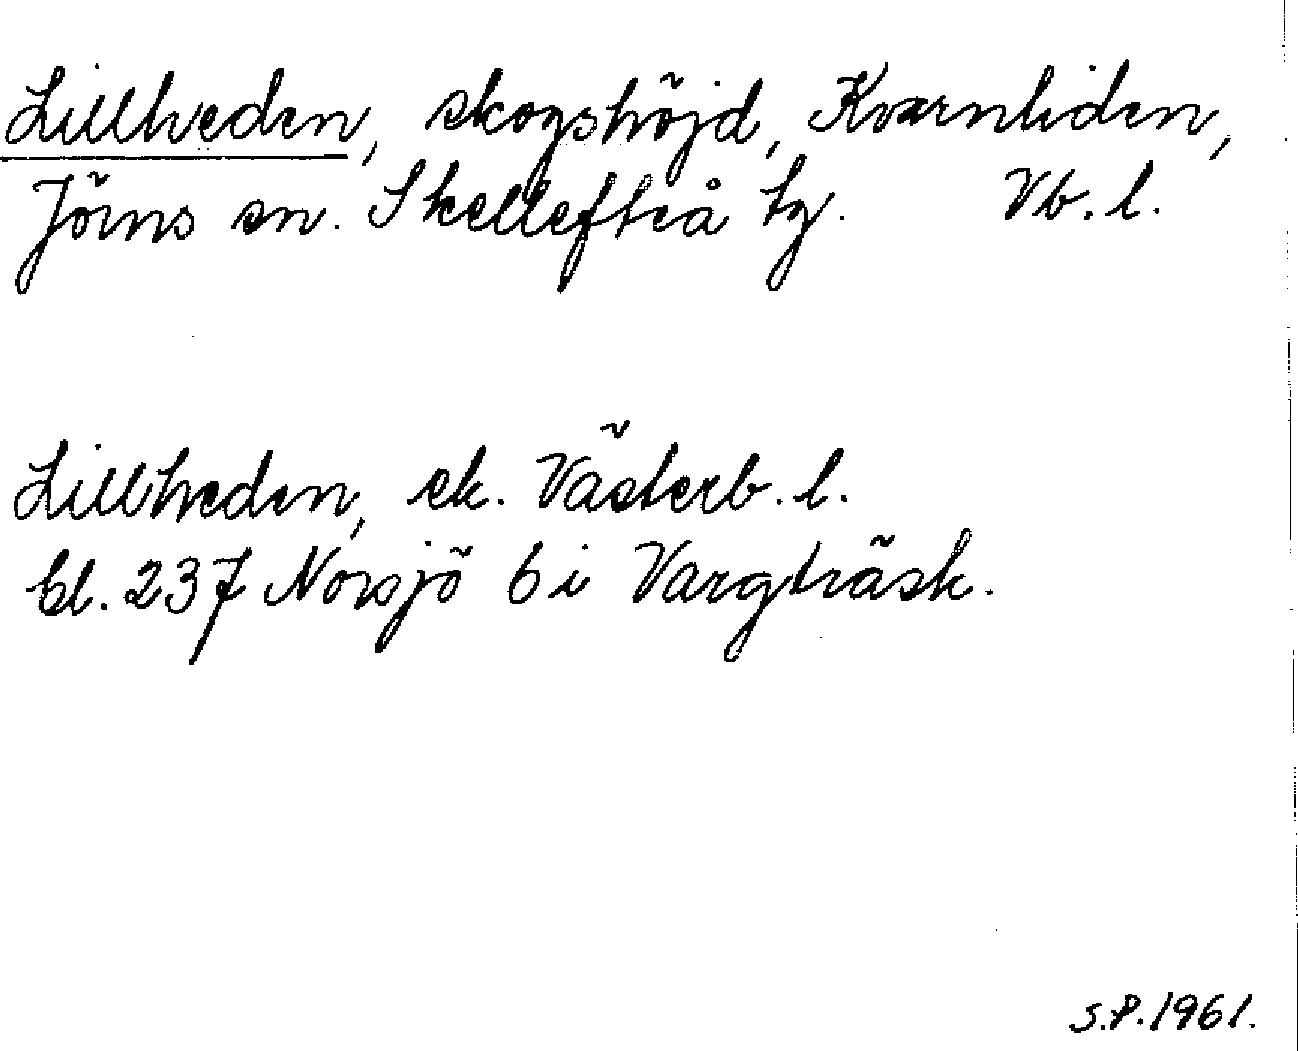 Lillheden, skogshöjd, Kvarnliden,
Jörns sn. Skellefteå tg. Vb. l.
Lillheden, ek. Västerb. l.
bl. 237 Norsjö 6 i Vargträsk.
S.P. 1961.